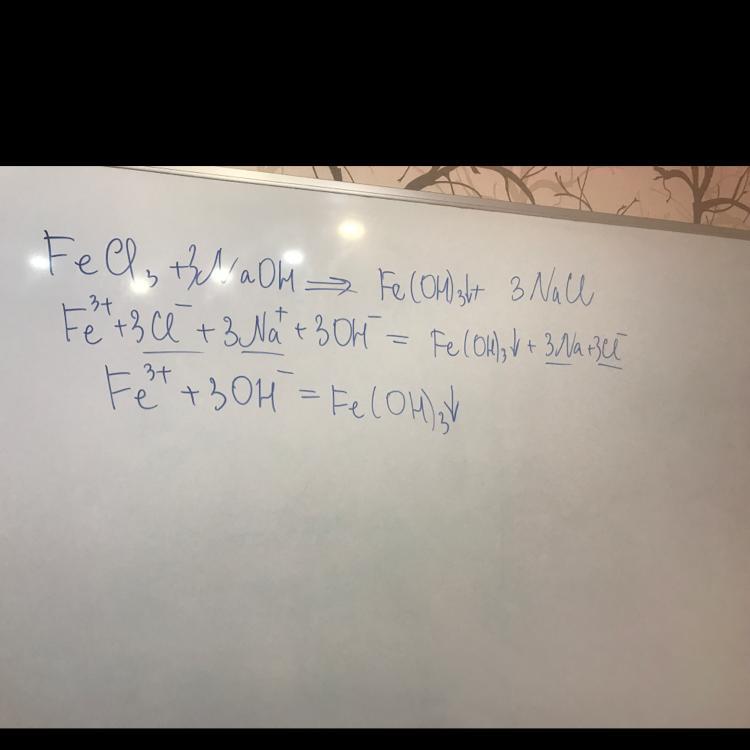 FeCl₃ + 3NaOH ⇒ Fe(OH)₃↓ + 3NaCl
Fe³⁺ + 3Cl⁻ + 3Na⁺ + 3OH⁻ = Fe(OH)₃↓ + 3Na + 3Cl⁻
Fe³⁺ + 3OH⁻ = Fe(OH)₃↓